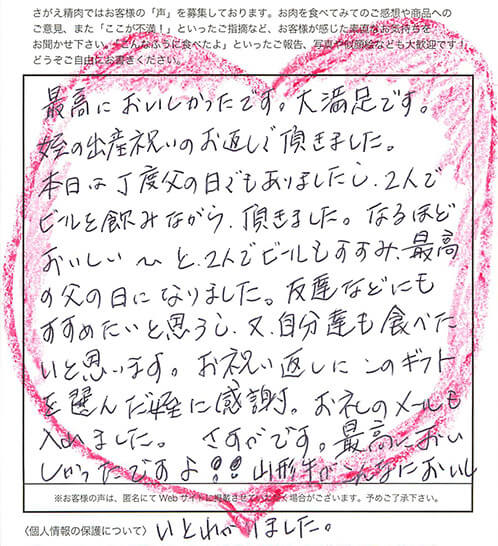 さがえ精肉ではお客様の「声」を募集しております。お肉を食べてみてのご感想や商品への
ご意見、また「ここが不満!」といったご指摘など、お客様が感じた素直なお気持ちを
お聞かせ下さい。「こんなふうに食べたよ」といったご報告、写真や似顔絵なども大歓迎です!
どうぞご自由にお書きください。
最高においしかったです。大満足です。
姪の出産祝いのお返しで頂きました。
本日は丁度父の日でもありましたし、2人で
ビールを飲みながら、頂きました。なるほど
おいしい〜と、2人でビールもすすみ、最高
の父の日になりました。友達などにも
すすめたいと思うし、又、自分達も食べた
いと思います。お祝い返しにこのギフト
を選んだ姪に感謝。お礼のメールも
入れました。 さすがです。最高においし
しかったですよ!! 山形牛がこんなにおいし
※お客様の声は、匿名にてWebサイトに掲載させていただく場合がございます。予めご了承下さい。
〈個人情報の保護について〉
いとわかりました。